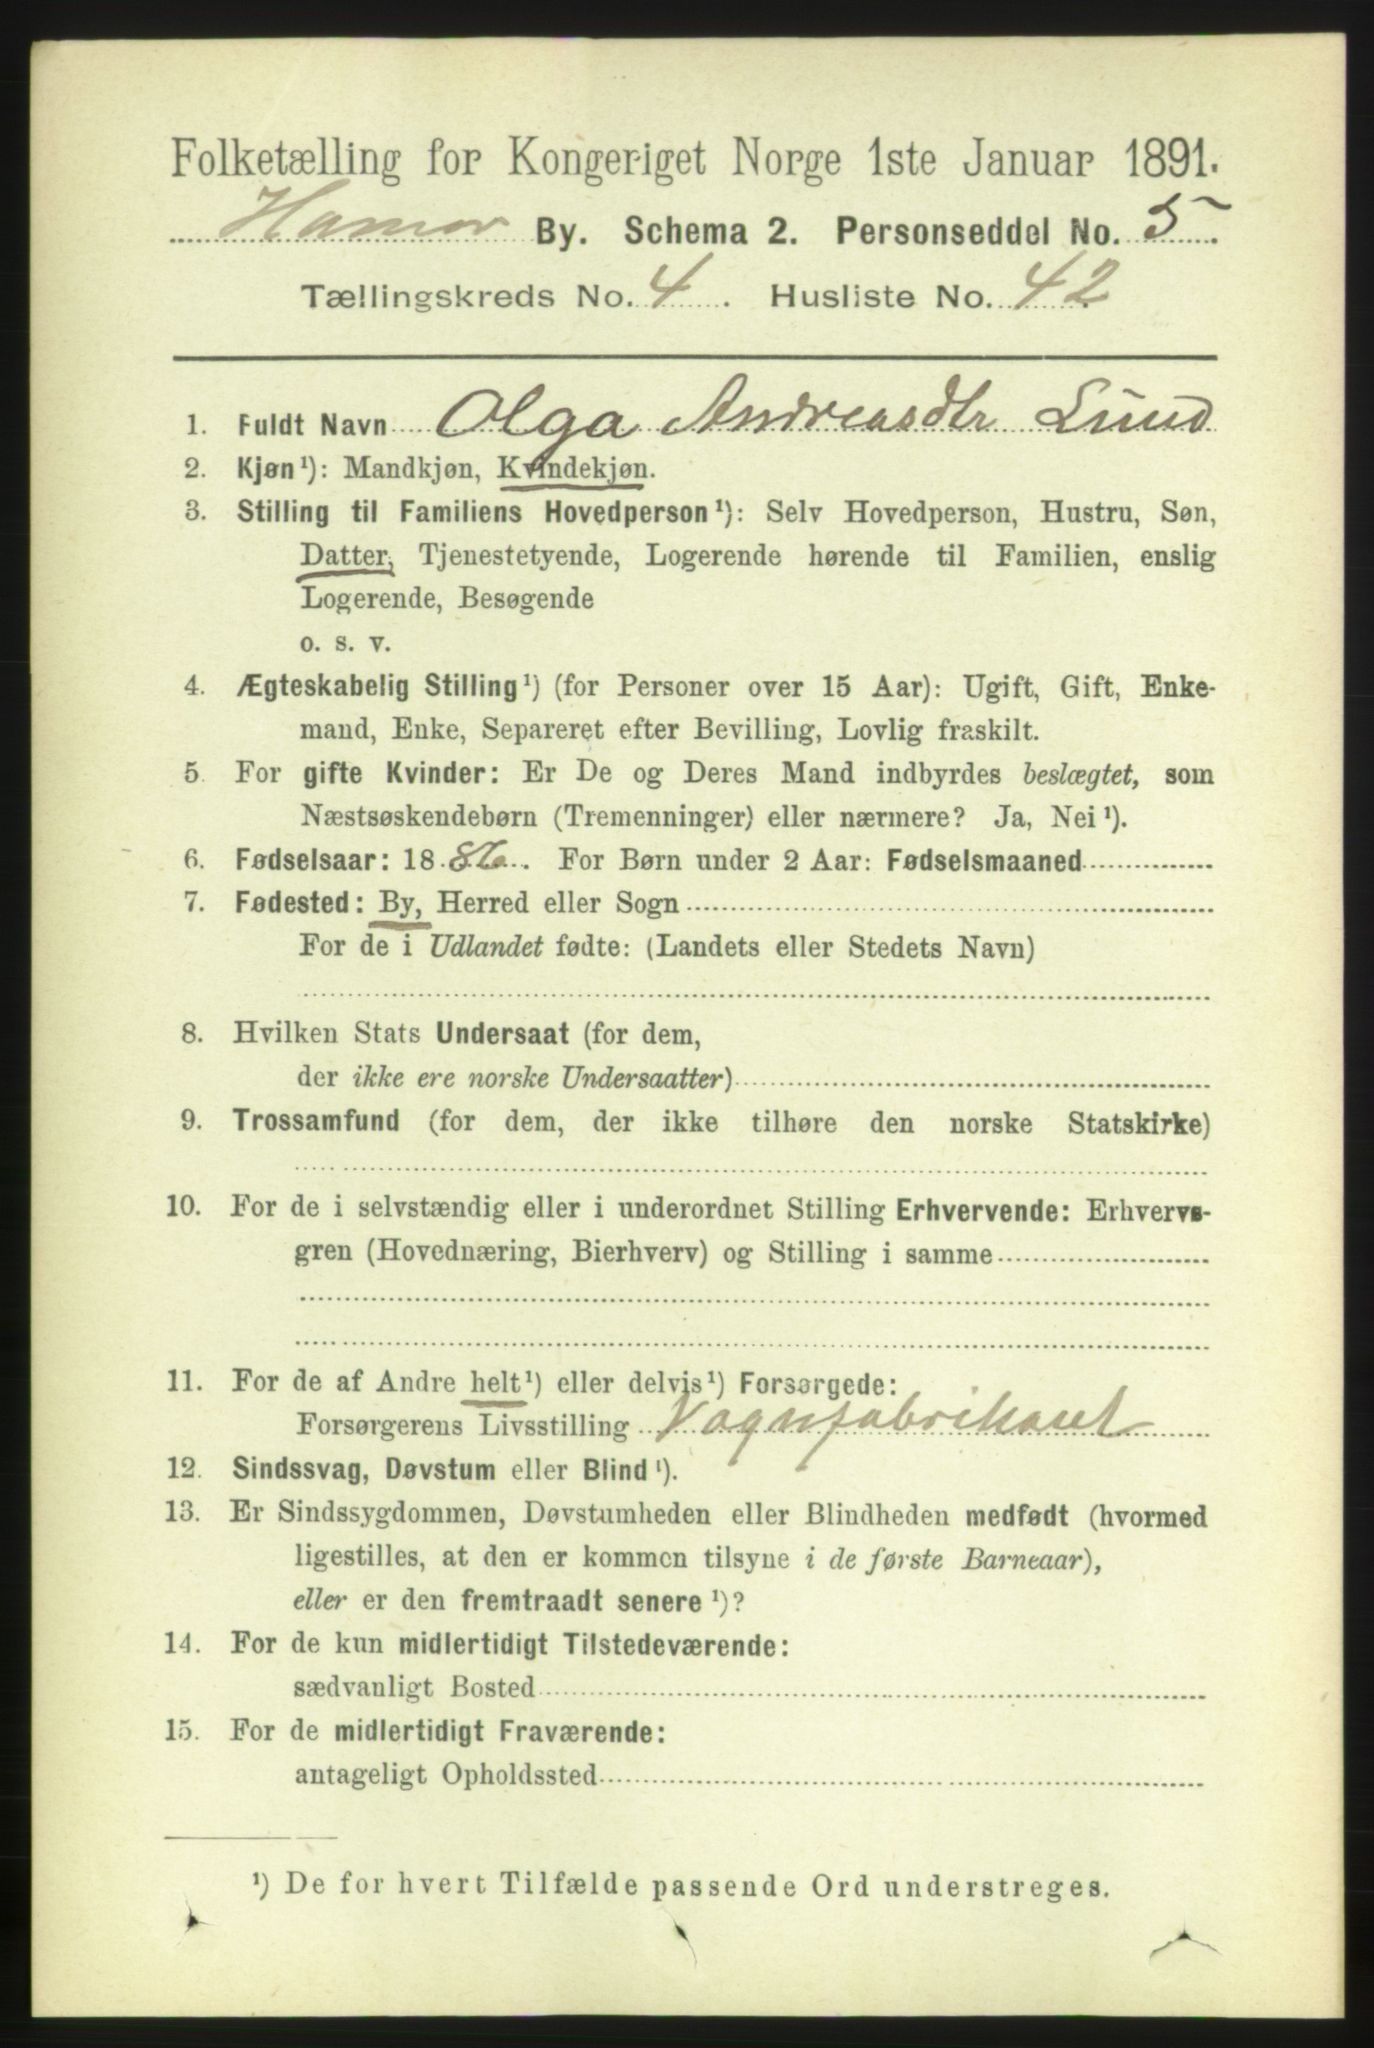 Folketælling for Kongeriget Norge 1ste Januar 1891.
Hamar By. Schema 2. Personseddel No. 5.
Tællingskreds No. 4. Husliste No. 42
1. Fuldt Navn Olga Andreasdtr Lund
2. Kjøn¹): Mandkjøn, Kvindekjøn.
3. Stilling til Familiens Hovedperson¹): Selv Hovedperson, Hustru, Søn,
Datter, Tjenestetyende, Logerende hørende til Familien, enslig
Logerende, Besøgende
o. s. v.
4. Ægteskabelig Stilling¹) (for Personer over 15 Aar): Ugift, Gift, Enke-
mand, Enke, Separeret efter Bevilling, Lovlig fraskilt.
5. For gifte Kvinder: Er De og Deres Mand indbyrdes beslægtet, som
Næstsøskendebørn (Tremenninger) eller nærmere? Ja, Nei¹).
6. Fødselsaar: 1886. For Børn under 2 Aar: Fødselsmaaned
7. Fødested: By, Herred eller Sogn
For de i Udlandet fødte: (Landets eller Stedets Navn)
8. Hvilken Stats Undersaat (for dem,
der ikke ere norske Undersaatter)
9. Trossamfund (for dem, der ikke tilhøre den norske Statskirke)
10. For de i selvstændig eller i underordnet Stilling Erhvervende: Erhvervs-
gren (Hovednæring, Bierhverv) og Stilling i samme
11. For de af Andre helt¹) eller delvis¹) Forsørgede:
Forsørgerens Livsstilling Vognfabrikant
12. Sindssvag, Døvstum eller Blind¹).
13. Er Sindssygdommen, Døvstumheden eller Blindheden medfødt (hvormed
ligestilles, at den er kommen tilsyne i de første Barneaar),
eller er den fremtraadt senere¹)?
14. For de kun midlertidigt Tilstedeværende:
sædvanligt Bosted
15. For de midlertidigt Fraværende:
antageligt Opholdssted
¹) De for hvert Tilfælde passende Ord understreges.